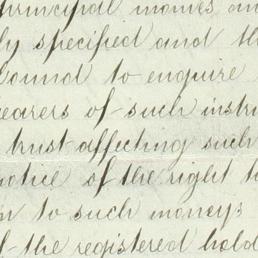 principal monies an
ly specified and th
bound to enquire
earers of such instru
trust affecting such
notice of the right to
n to such money;
f the registered hold